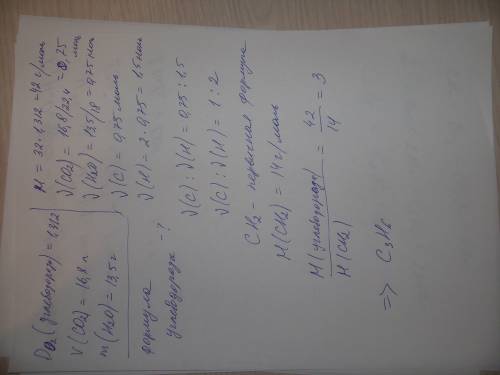 D O₂ (углеводорода) = 1,312
V (CO₂) = 16,8 л
m (H₂O) = 13,5 г
формула
углеводорода -?
M = 32 · 1,312 = 42 г/моль
ν(CO₂) = 16,8/22,4 = 0,75
моль
ν(H₂O) = 13,5/18 = 0,75 моль
ν(C) = 0,75 моль
ν(H) = 2 · 0,75 = 1,5 моль
ν(C) : ν(H) = 0,75 : 1,5
ν(C) : ν(H) = 1 : 2
CH₂ - первисная формула
M(CH₂) = 14 г/моль
M(углеводорода) / M(CH₂) = 42 / 14 = 3
=> C₃H₆